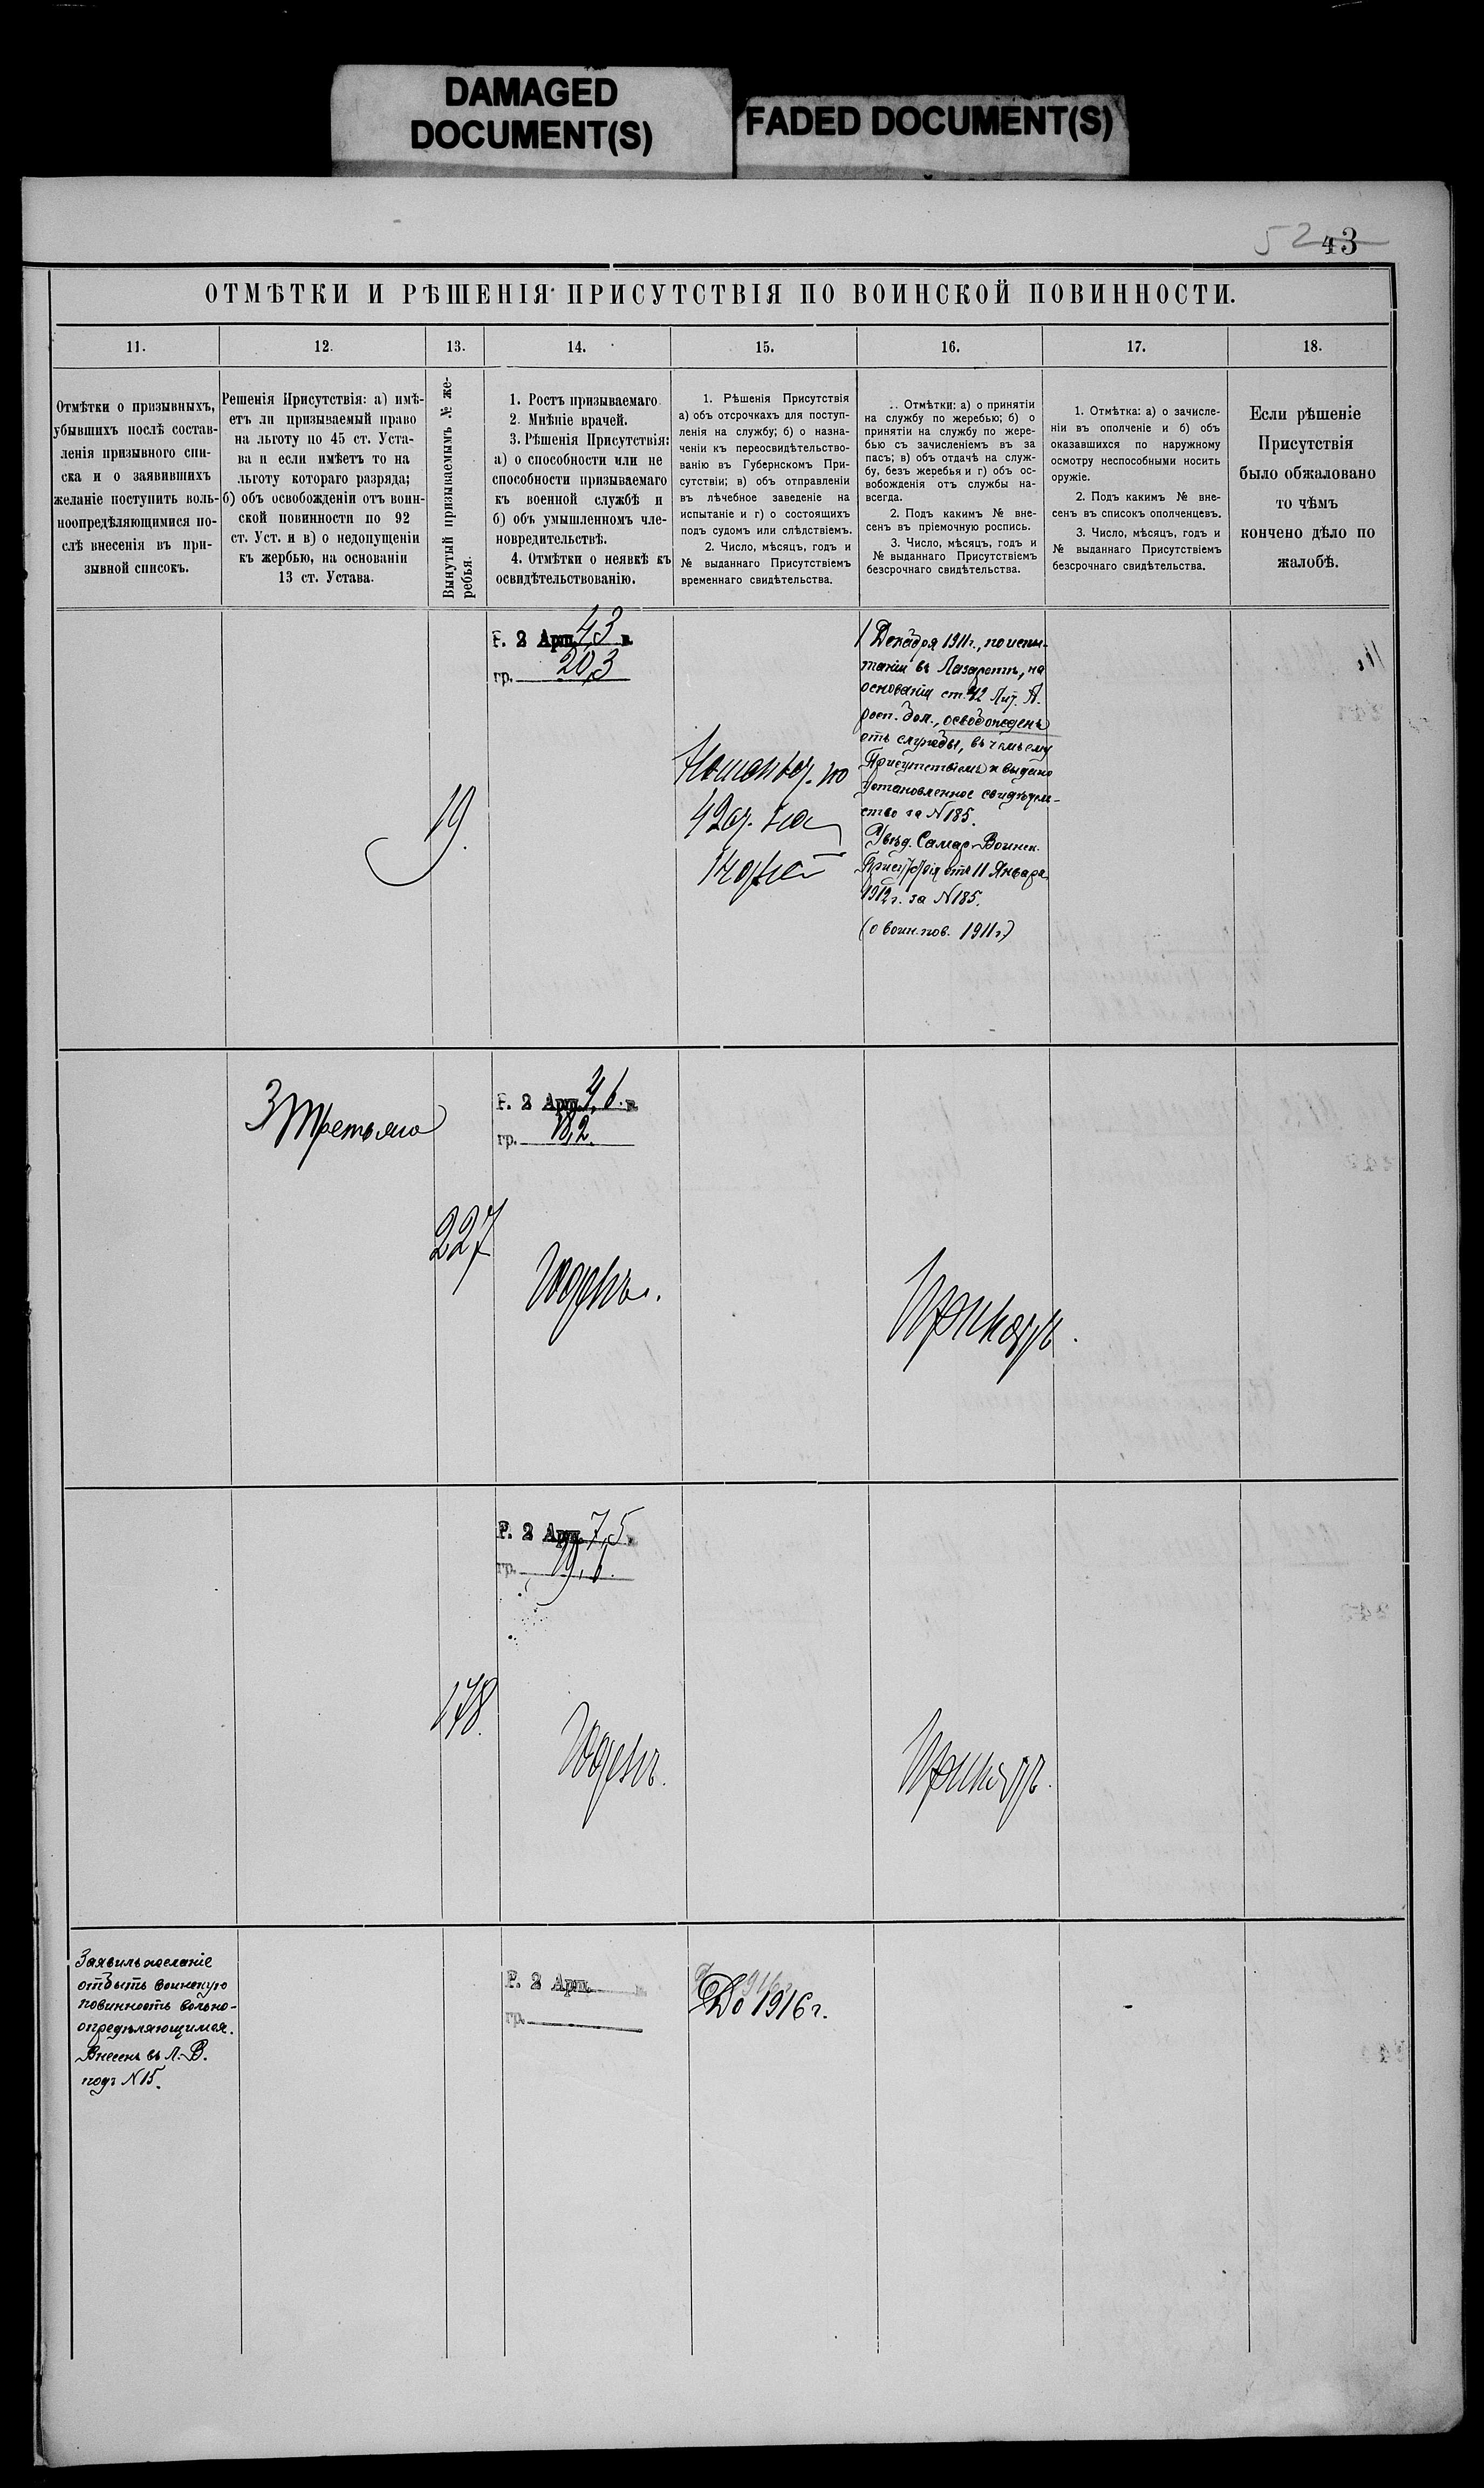 DAMAGED
DOCUMENT(S)
FADED DOCUMENT(S)
52 43
ОТМѢТКИ И РѢШЕНІЯ ПРИСУТСТВІЯ ПО ВОИНСКОЙ ПОВИННОСТИ.
11.
12.
13.
14.
15.
16.
17.
18.
Отмѣтки о призывныхъ,
убывшихъ послѣ состав-
ленія призывного спи-
ска и о заявившихъ
желаніе поступить воль-
ноопредѣляющимися по-
слѣ внесенія въ при-
зывной списокъ.
Решенія Присутствія: а) имѣ-
етъ ли призываемый право
на льготу по 45 ст. Уста-
ва и если имѣетъ то на
льготу котораго разряда;
б) объ освобожденіи отъ воин-
ской повинности по 92
ст. Уст. и в) о недопущеніи
къ жербью, на основаніи
13 ст. Устава.
Вынутый призываемымъ № же-
ребья.
1. Ростъ призываемаго
2. Мнѣніе врачей.
3. Рѣшенія Присутствія:
а) о способности или не
способности призываемаго
къ военной службѣ и
б) объ умышленномъ чле-
новредительствѣ.
4. Отмѣтки о неявкѣ къ
освидѣтельствованію.
1. Рѣшенія Присутствія
а) объ отсрочкахъ для поступ-
ленія на службу; б) о назна-
ченіи къ переосвидѣтельство-
ванію въ Губернскомъ При-
сутствіи; в) объ отправленіи
въ лѣчебное заведеніе на
испытаніе и г) о состоящихъ
подъ судомъ или слѣдствіемъ.
2. Число, мѣсяцъ, годъ и
№ выданнаго Присутствіемъ
временнаго свидѣтельства.
Отмѣтки: а) о принятіи
на службу по жеребью; б) о
принятіи на службу по жере-
бью съ зачисленіемъ въ за
пасъ; в) объ отдачѣ на служ-
бу, безъ жеребья и г) объ ос-
вобожденія отъ службы на-
всегда.
2. Подъ какимъ № вне-
сенъ въ пріемочную роспись.
3. Число, мѣсяцъ, годъ и
№ выданнаго Присутствіемъ
безсрочнаго свидѣтельства.
1. Отмѣтка: а) о зачисле-
ніи въ ополченіе и б) объ
оказавшихся по наружному
осмотру неспособными носить
оружіе.
2. Подъ какимъ № вне-
сенъ въ списокъ ополченцевъ.
3. Число, мѣсяцъ, годъ и
№ выданнаго Присутствіемъ
безсрочнаго свидѣтельства.
Если рѣшеніе
Присутствія
было обжаловано
то чѣмъ
кончено дѣло по
жалобѣ.
19.
Р. 2 Арш. 4,3 в.
гр. 20,3
1 Декабря 1911г., по испы-
таніи въ Лазаретѣ, на
основаніи ст. 42 Лит. А.
росп. бол., освобожденъ
отъ службы, въ чемъ ему
Присутствіемъ и выдано
установленное свидѣтель-
ство за N 185.
Уѣзд. Самар. Воинск.
Присутствія отъ 11 Января
1912 г. за N 185.
(о воин. пов. 1911 г.)
3 Третьяго
227
Р. 2 Арш. 4,6. в.
гр. 18,2.
Годенъ.
Принятъ.
178.
Р. 2 Арш. 7,5. в.
гр. 19,1.
Годенъ.
Принятъ.
Заявилъ желаніе
отбыть воинскую
повинность вольно-
опредѣляющимся.
Внесенъ въ Л. В.
подъ N 15.
Р. 2 Арш. в.
гр.
До 1916 г.